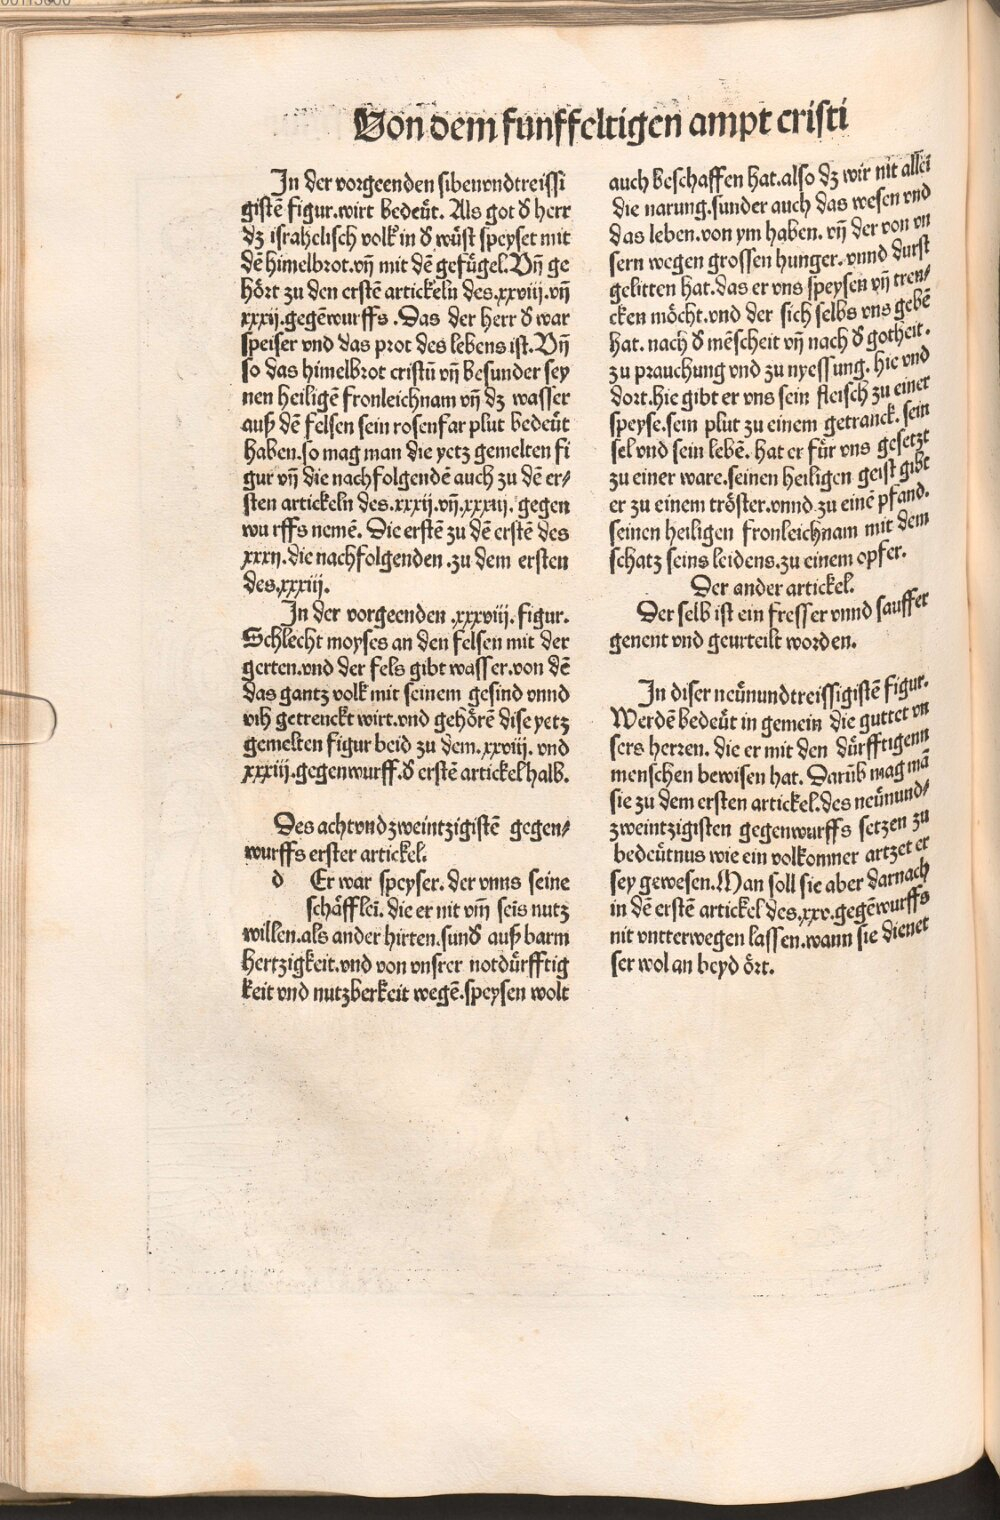 Von dem funffeltigen ampt cristi
In der vorgeenden sibenvndtreissi
gistē figur.wirt bedeüt. Als got d̕ herr
dz israhelisch volk in d̕ wüst speyset mit
dē himelbrot.vn̄ mit dē gefügel.Vn̄ ge
hört zu den erstē artickeln des.xxviii.vn̄
xxxij.gegēwurffs .Das der herr d̕ war
speiser vnd das prot des lebens ist.Vn̄
so das himelbrot cristū vn̄ besunder sey
nen heiligē fronleichnam vn̄ dz wasser
auß dē felsen sein rosenfar plut bedeüt
haben.so mag man die yetz gemelten fi
gur vn̄ die nachfolgendē auch zu dē er⸗
sten artickeln des.xxxij.vn̄.xxxiij. gegen
wurffs nemē. Die erstē zu dē erstē des
xxxij.die nachfolgenden .zu dem ersten
des.xxxiii.
In der vorgeenden .xxxviii. figur.
Schlecht moyses an den felsen mit der
gerten.vnd der fels gibt wasser.von dē
das gantz volk mit seinem gesind vnnd
vih getrenckt wirt.vnd gehörē dise yetz
gemelten figur beid zu dem.xxviii. vnd
xxxiii.gegenwurff.d̕ erstē artickel halb.
Des achtvndzweintzigistē gegen⸗
wurffs erster artickel.
d Er war speyser. der vnns seine
schäfflei. die er nit vm̄ seis nutz
willen.als ander hirten.sund̕ auß barm
hertzigkeit.vnd von vnsrer notdürfftig
keit vnd nutzberkeit wegē.speysen wolt
auch beschaffen hat.also dz wir nit allei
die narung.sunder auch das wesen vnd
das leben.von ym haben. vn̄ der von vn
sern wegen grossen hunger. vnnd durst
gelitten hat.das er vns speysen vn̄ tren⸗
cken möcht.vnd der sich selbs vns gebē
hat. nach d̕ mēscheit vn̄ nach d̕ gotheit.
zu prauchung vnd zu nyessung. hie vnd
dort.hie gibt er vns sein fleisch zu einer
speyse.sein plut zu einem getranck. sein
sel vnd sein lebē. hat er für vns gesetzt
zu einer ware.seinen heiligen geist gibt
er zu einem tröster.vnnd zu einē pfand.
seinen heiligen fronleichnam mit dem
schatz seins leidens.zu einem opfer.
Der ander artickel.
Der selb ist ein fresser vnnd sauffer
genent vnd geurteilt worden.
In diser neünundtreissigistē figur.
Werdē bedeüt in gemein die guttet vn
sers herren. die er mit den dürfftigenn
menschen bewisen hat. Darūb mag mā
sie zu dem ersten artickel.des neünund⸗
zweintzigisten gegenwurffs setzen zu
bedeütnus wie ein volkomner artzet er
sey gewesen.Man soll sie aber darnach
in dē erstē artickel des.xxv.gegēwurffs
nit vntterwegen lassen.wann sie dienet
ser wol an beyd ört.